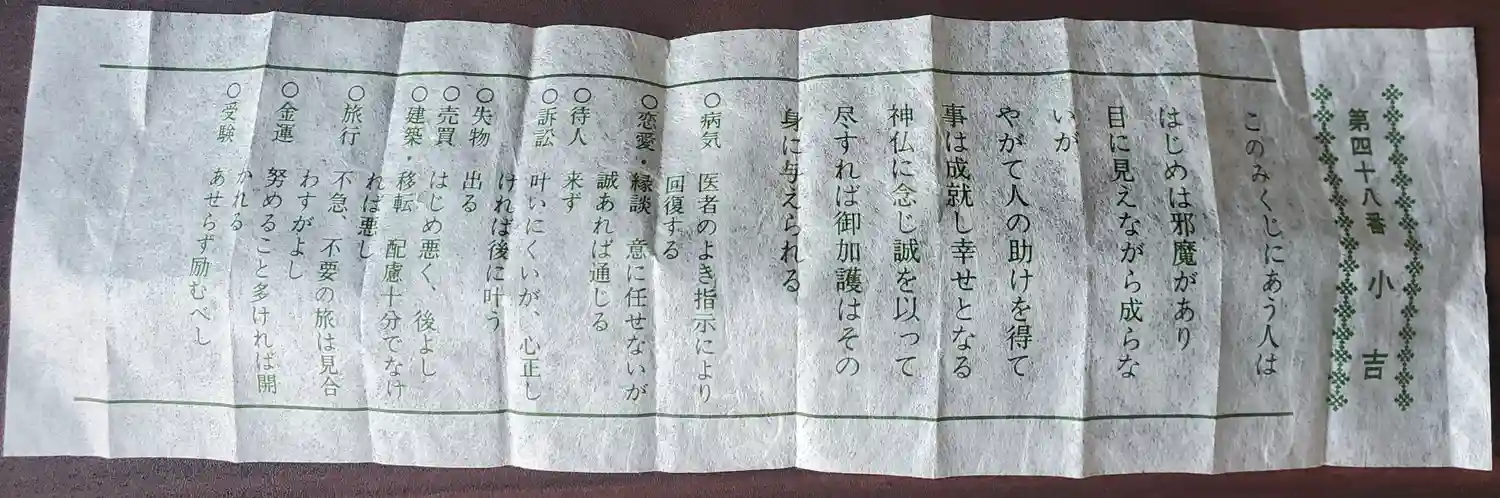 第四十八番 小吉
このみくじにあう人は
はじめは邪魔があり
目に見えながら成らな
いが
やがて人の助けを得て
事は成就し幸せとなる
神仏に念じ誠を以って
尽すれば御加護はその
身に与えられる
○病気 医者のよき指示により
回復する
○恋愛・縁談 意に任せないが
誠あれば通じる
○待人 来ず
○訴訟 叶いにくいが、心正し
ければ後に叶う
○失物 出る
○売買 はじめ悪く、後よし
○建築・移転 配慮十分でなけ
れば悪し
○旅行 不急、不要の旅は見合
わすがよし
○金運 努めること多ければ開
かれる
○受験 あせらず励むべし